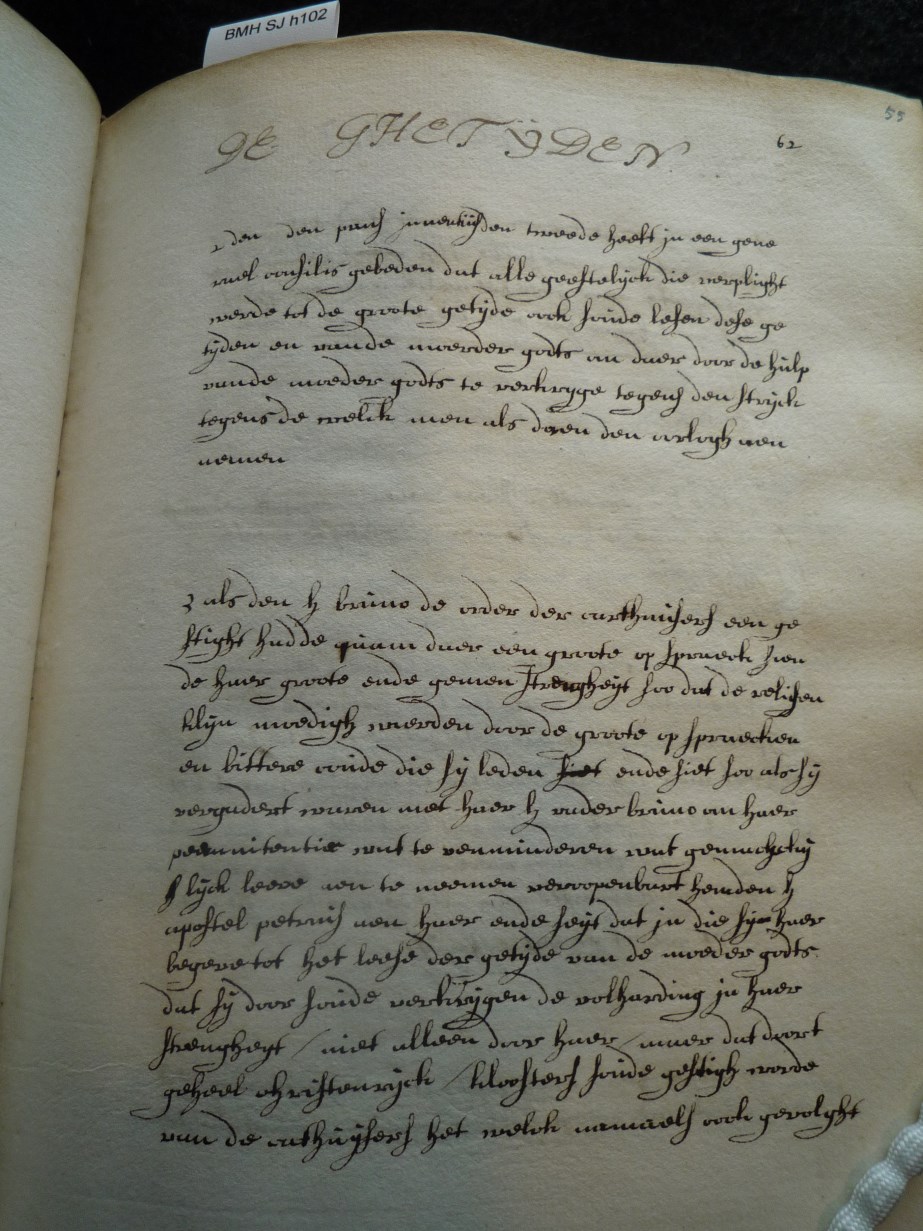 BMH SJ h102
55
DE GHETŸDEN
62
2 den den paus innocentijus den tweede heeft in een gene
rael consilis gebeden dat alle geestelijck die verplight
werde tot de groote getijde ook soude lesen dese ge
tijden en vande moeder godts om daer door de hulp
vande moeder godts te verkryge tegens den stryck
tegens de welck men als doen den oorlogh aen
nemen
3 als den h bruno de order der carthuisers een ge
stight hadde quam daer een groote op spraeck
de haer groote ende strengheyt soo dat de
klyn moedigh waerden door de groote op spraecken
en bittere coude die sy leden ende siet soo als sy
vergadert waren met haer h vader bruno om haer
penitentie wat te verminderen wat
lyck leere aen te neemen veroopenbart hem den h
apostel petrus aen haer ende seyt dat in die sy haer
begeve tot het leese der getijde van de moeder godts
dat sy door soude verkrijgen de volharding in haer
strengheyt / niet alleen door haer / maer dat doort
geheel christenryck / kloosters soude gestigh worde
van de cathuysers het welck namaels ook gevolght